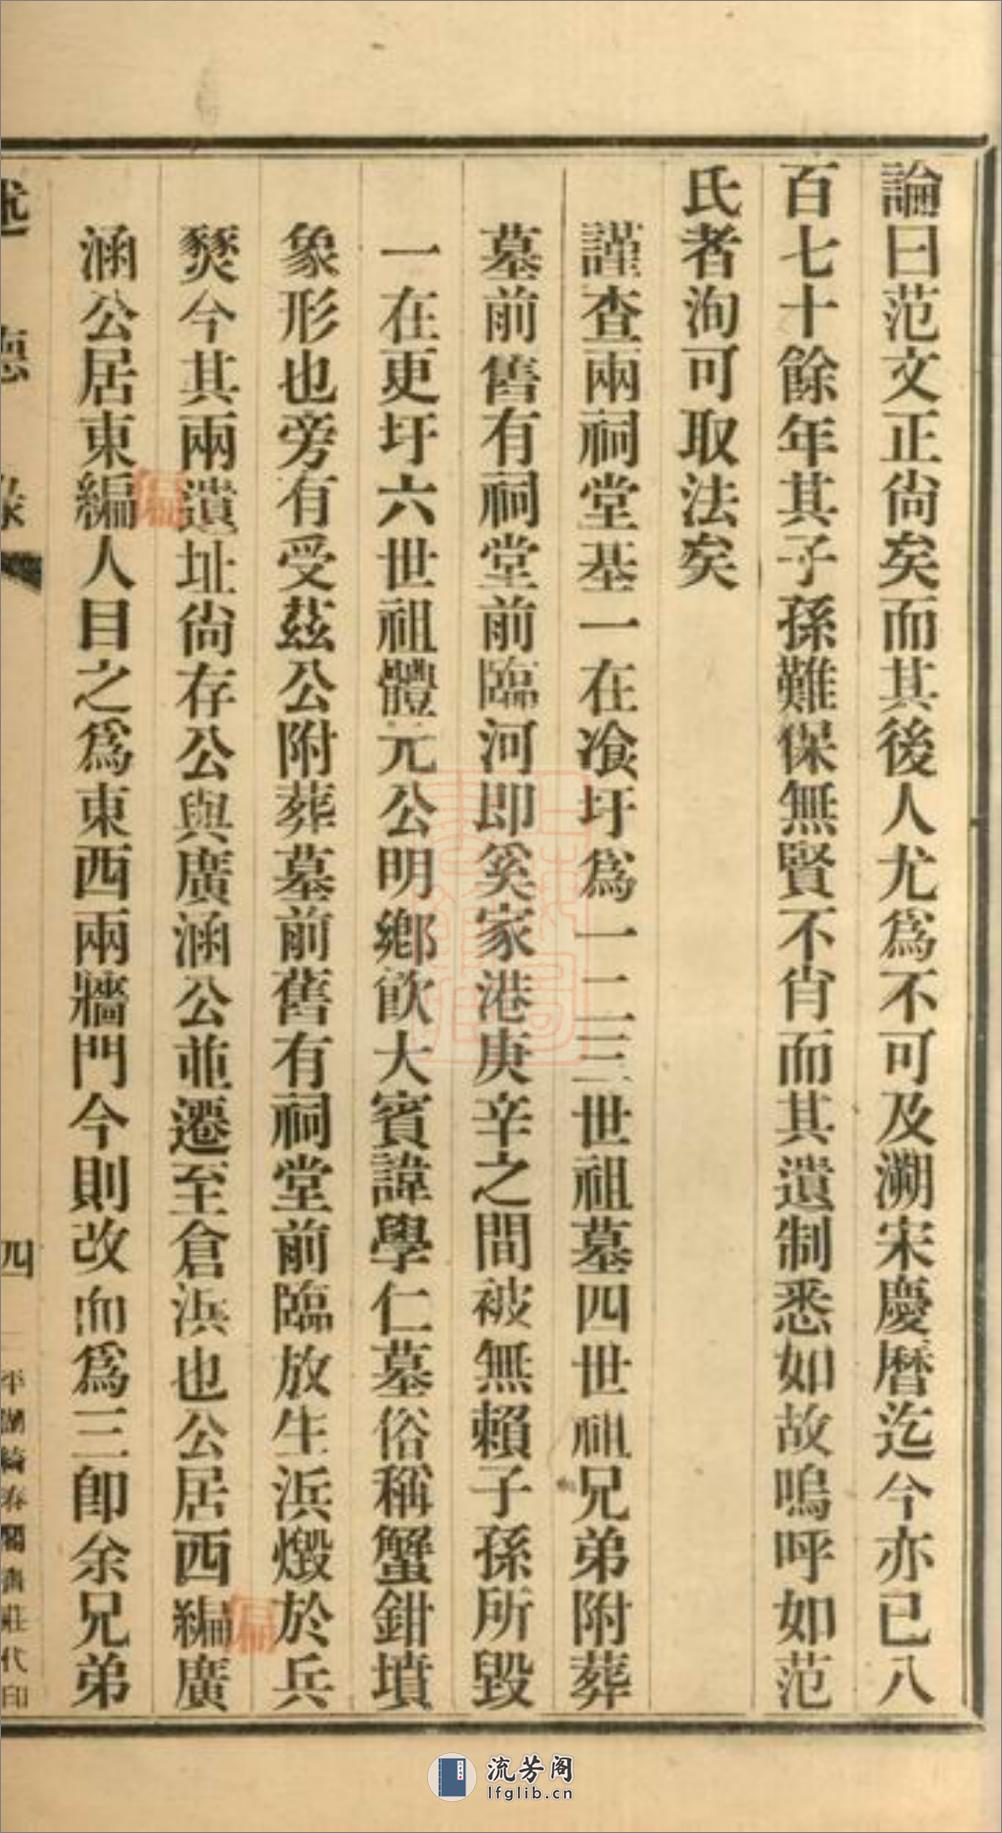 論曰范文正尙矣而其後人尤爲不可及溯宋慶曆迄今亦已八
百七十餘年其子孫難保無賢不肖而其遺制悉如故嗚呼如范
氏者洵可取法矣
謹查兩祠堂基一在飡圩爲一二三世祖墓四世祖兄弟附葬
墓前舊有祠堂前臨河即奚家港庚辛之間被無賴子孫所毀
一在更圩六世祖體元公明鄕飮大賓諱學仁墓俗稱蟹鉗墳
象形也旁有受茲公附葬墓前舊有祠堂前臨放生浜燬於兵
燹今其兩遺址尙存公與廣涵公並遷至倉浜也公居西編廣
偏
涵公居東編人目之爲東西兩牆門今則改而爲三卽余兄弟
偏
述德錄
四
平湖綺春閣書莊代印
流芳阁
lfglib.cn